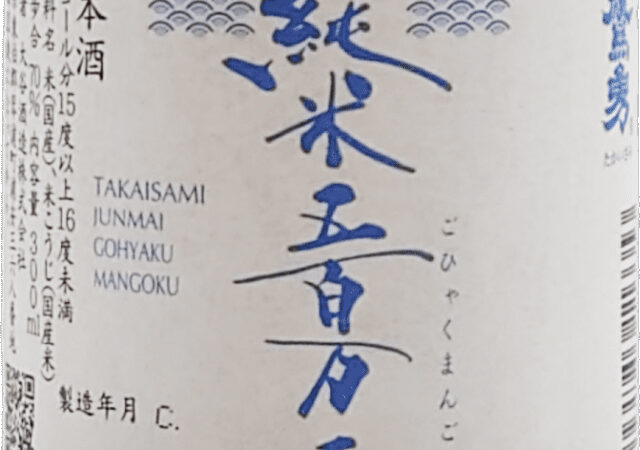 純米五百万
ごひゃくまんご
鷹勇
本酒
ール分15度以上16度未満
料名 米(国産)、米こうじ(国産米)
歩合 70% 内容量 300ml
大谷酒造株式会社
TAKAISAMI
JUNMAI
GOHYAKU
MANGOKU
製造年月 C.